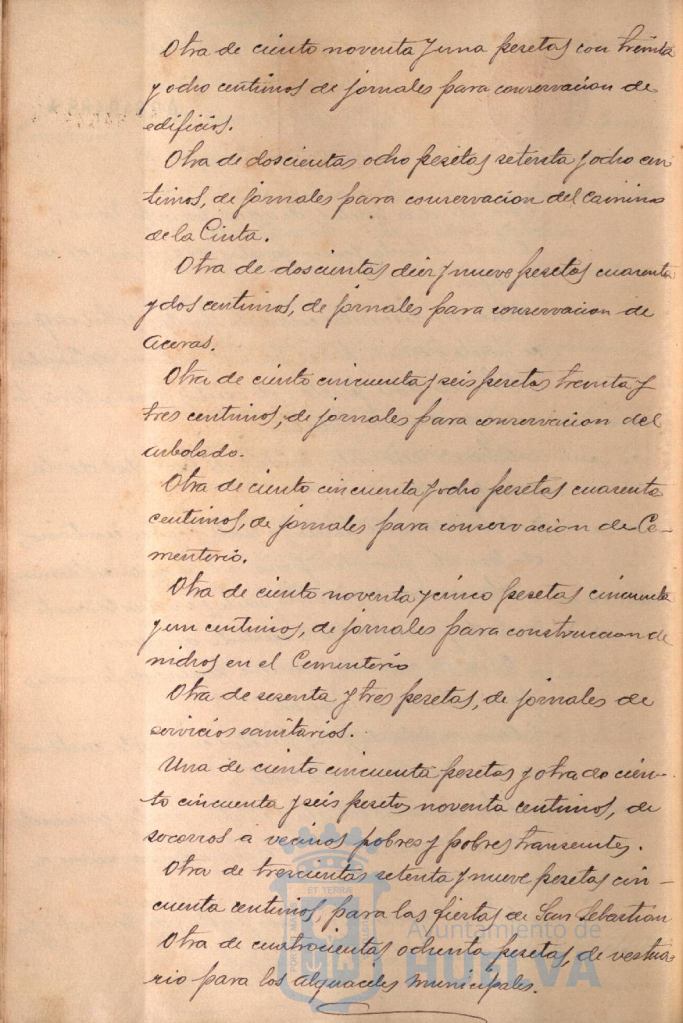 Otra de ciento noventa y una pesetas con treinta
y ocho centimos de jornales para conservacion de
edificios.
Otra de doscientas ocho pesetas setenta y ocho cen
timos, de jornales para conservacion del Camino
de la Cinta.
Otra de doscientas diez y nueve pesetas cuarenta
y dos centimos, de jornales para conservacion de
aceras.
Otra de ciento cincuenta y seis pesetas treinta y
tres centimos, de jornales para conservacion del
arbolado.
Otra de ciento cincuenta y ocho pesetas cuarenta
centimos, de jornales para conservacion de Ce-
menterio.
Otra de ciento noventa y cinco pesetas cincuenta
y un centimos, de jornales para construccion de
nichos en el Cementerio
Otra de sesenta y tres pesetas, de jornales de
servicios sanitarios.
Una de ciento cincuenta pesetas y otra de cien-
to cincuenta y seis pesetas noventa centimos, de
socorros a vecinos pobres y pobres transeuntes.
Otra de trescientas setenta y nueve pesetas cin-
cuenta centimos, para las fiestas de San Sebastian
Otra de cuatrocientas ochenta pesetas, de vestua-
rio para los alguaceles municipales.
ET TERRÆ
Ayuntamiento de
HUELVA